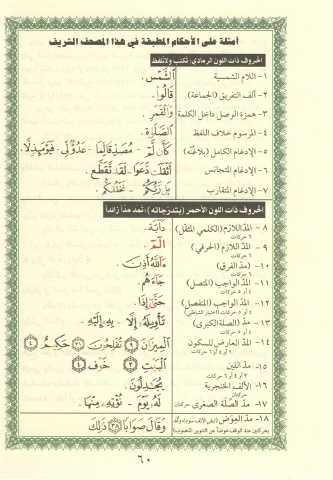 أمثلة على الأحكام المطبقة في هذا المصحف الشريف
الحروف ذات اللون الرمادي: تكتب ولا تلفظ
١- اللام الشمسية الشَّمْس.
٢- ألف التفريق (الجماعة) قَالُوا.
٣- همزة الوصل داخل الكلمة وَالْقَمَرِ.
٤- المرسوم خلاف اللفظ الصَّلَوٰةَ.
٥- الإدغام الكامل (بلا غنّة) كَأَن لَّمْ - مُصَدِّقًا لِّمَا - عَدُوٌّ لِّي - فَيَوْمَئِذٍ لَّا.
٦- الإدغام المتجانس أَثْقَلَت دَّعَوَا - لَقَد تَّقَطَّعَ.
٧- الإدغام المتقارب بَل رَّبُّكُمْ - نَخْلُقكُّم.
الحروف ذات اللون الأحمر (بتدرجاته): تُمَد مدّاً زائداً
٨- المدّ اللازم (الكلمي المثقّل) دَآبَّة.
٦ حركات
٩- المدّ اللازم (الحرفي) الٓمٓ.
٦ حركات
١٠- مدّ (الفرق) ءَآللَّهُ أَذِنَ.
٦ حركات
١١- المدّ الواجب (المتصل) جَآءَهُم.
٤ أو ٥ حركات
١٢- المدّ الواجب (المنفصل) حَتَّىٰٓ إِذَا.
٤ أو ٥ حركات
١٣- مدّ (الصلة الكبرى) تَأْوِيلَهُۥٓ إِلَّا - بِهِۦٓ إِلَيْهِ.
٤ أو ٥ حركات
١٤- المدّ العارض للسكون الْمِيزَانَ تُفْلِحُونَ حَكِيمٌ
٢ أو ٤ أو ٦ حركات
١٥- مدّ اللين الْبَيْتِ خَوْفٍ
٢ أو ٤ أو ٦ حركات
١٦- الألف الخنجرية يُجَٰدِلُونَ.
حركتان
١٧- مدّ الصّلة الصغرى حركتان لَهُۥ يَوْمَ - نُؤْتِهِۦ مِنْهَا.
١٨- مدّ العِوَض وَقَالَ صَوَابًا ٣٨ ذَٰلِكَ
٦٠